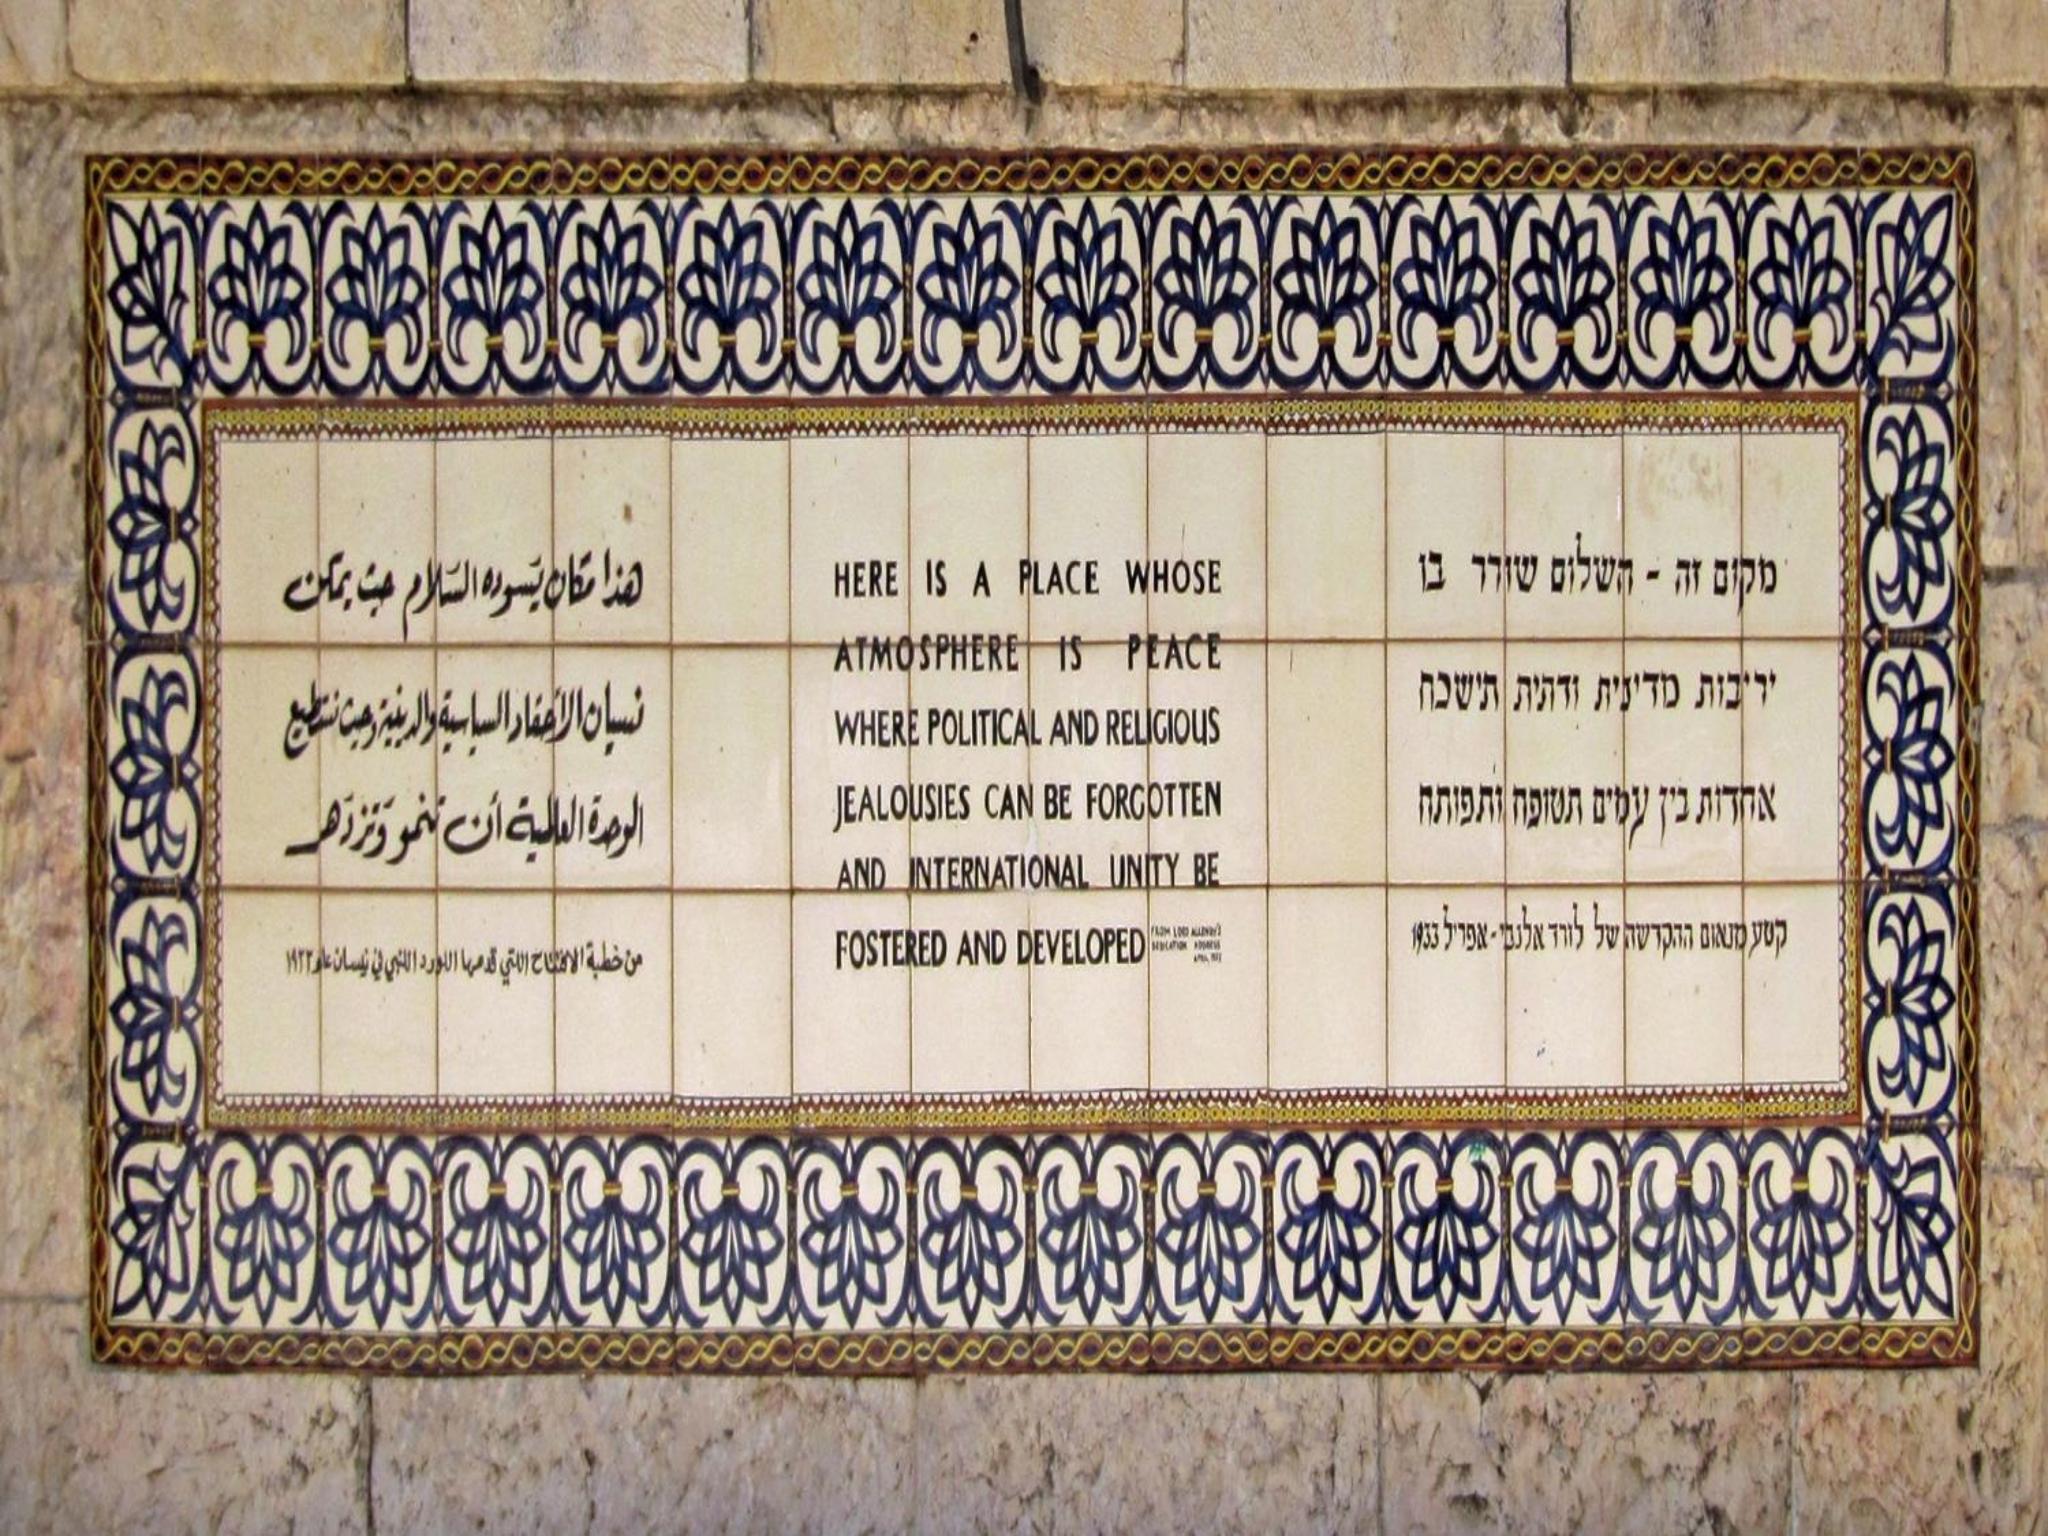 هذا مكان يَسوده السَّلام حيث يمكن
نسيان الأحقاد السياسية والدينية وحيث نستطيع
الوحدة العالمية أن تنمو وَتزدَهر
من خطبة الافتتاح اللتي قدمها اللورد اللنبي في نيسان عام ١٩٣٣
HERE IS A PLACE WHOSE
ATMOSPHERE IS PEACE
WHERE POLITICAL AND RELIGIOUS
JEALOUSIES CAN BE FORGOTTEN
AND INTERNATIONAL UNITY BE
FOSTERED AND DEVELOPED
FROM LORD ALLENBY'S
DEDICATION ADDRESS
APRIL, 1933
מקום זה - השלום שורר בו
יריבות מדינית ודתית תישכח
אחדות בין עמים תטופח ותפותח
קטע מנאום ההקדשה של לורד אלנבי - אפריל 1933